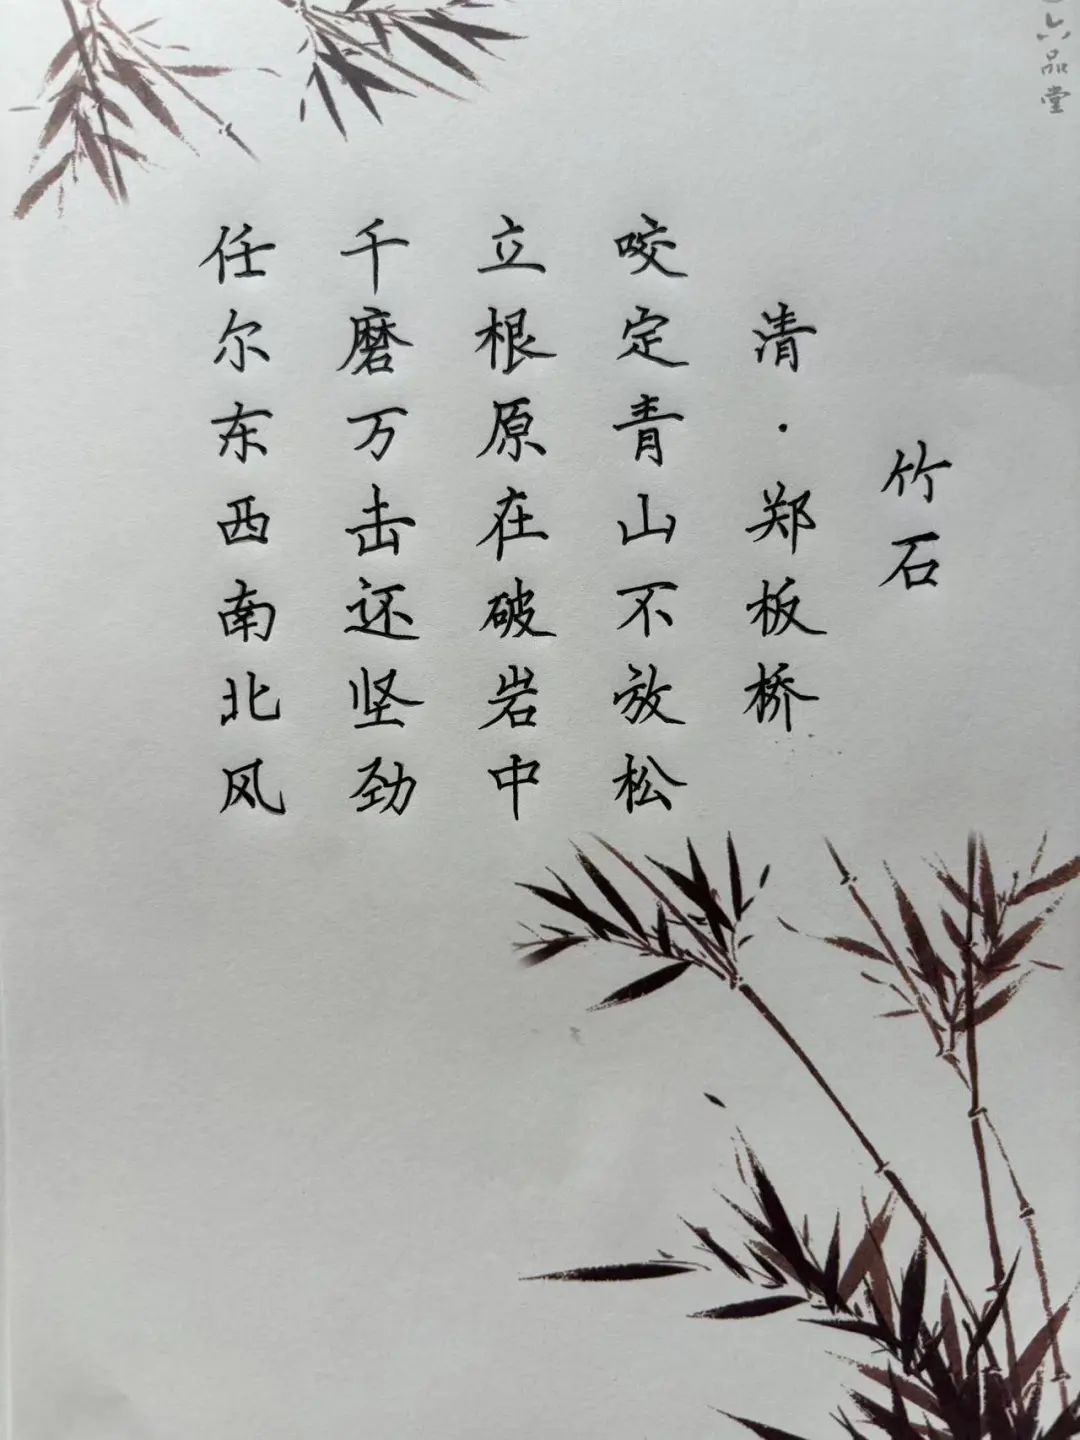 六品堂
竹石
清·郑板桥
咬定青山不放松
立根原在破岩中
千磨万击还坚劲
任尔东西南北风